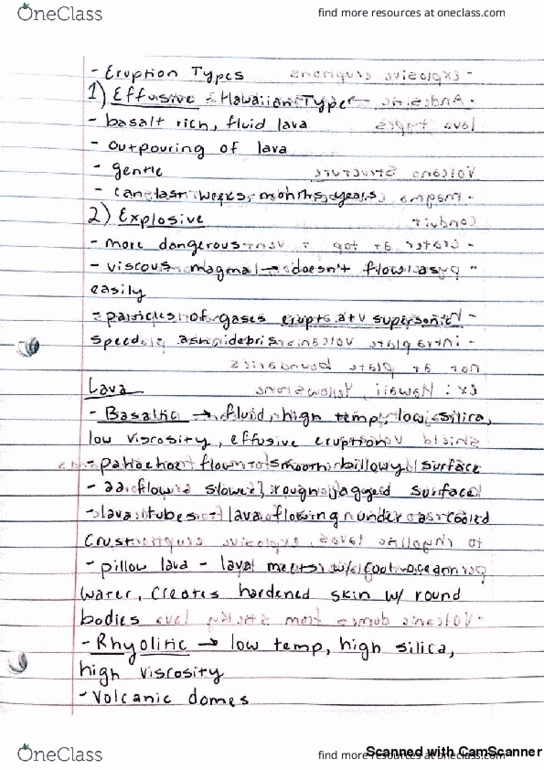 OneClass
find more resources at oneclass.com
- Eruption Types
1) Effusive - Hawaiian Type
- basalt rich, fluid lava
- outpouring of lava
- gentle
- can last weeks, months, years
2) Explosive
- more dangerous
- viscous magma → doesn't flow as
easily
- particles of gases erupt at supersonic
speed, ash, debris
Lava
- Basaltic → fluid, high temp, low silica,
low viscosity, effusive eruption
- pahoehoe flow → smooth billowy surface
- aa flow slower, rough jagged surface
- lava tubes - lava flowing under a cooled
crust
- pillow lava - lava meets w/ cool ocean
water, creates hardened skin w/ round
bodies
- Rhyolitic → low temp, high silica,
high viscosity
- Volcanic domes
OneClass
find more resources at oneclass.com
Scanned with CamScanner